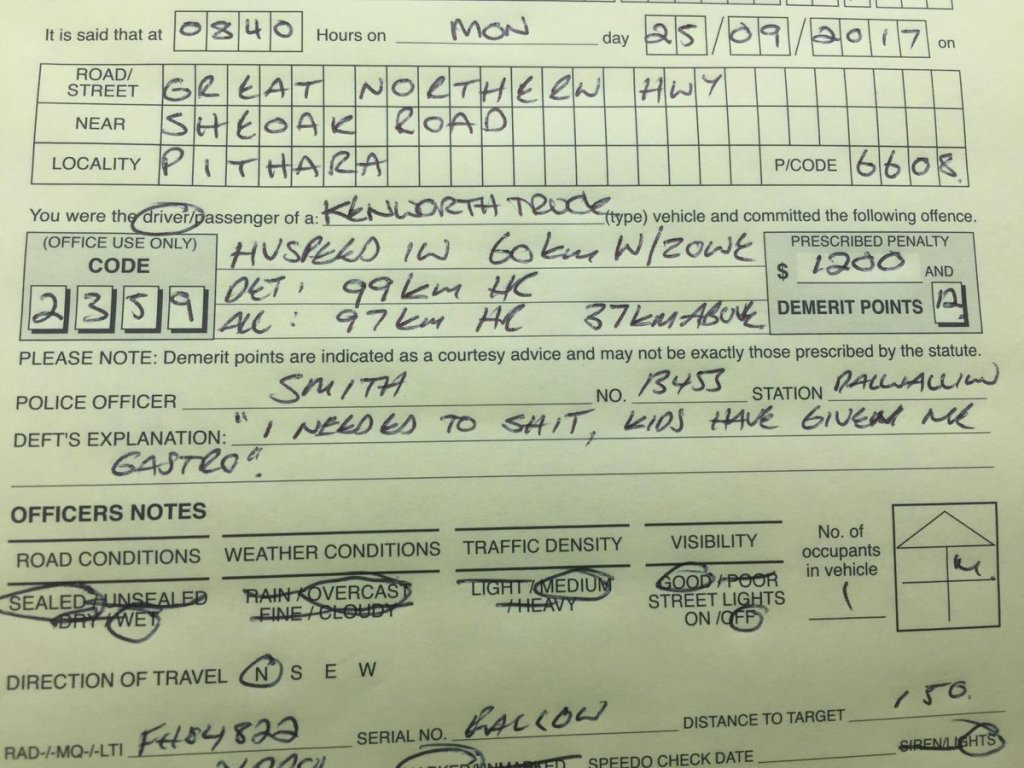 It is said that at 0840 Hours on MON day 25/09/2017 on
ROAD/STREET GREAT NORTHERN HWY
NEAR SHEOAK ROAD
LOCALITY PITHARA P/CODE 6608
You were the driver/passenger of a: KENWORTH TRUCK (type) vehicle and committed the following offence.
(OFFICE USE ONLY)
CODE
2359
HVSPEED IN 60km W/ZONE
DET: 99km HR
ALL: 97km HR 37km ABOVE
PRESCRIBED PENALTY
$ 1200 AND
DEMERIT POINTS 12
PLEASE NOTE: Demerit points are indicated as a courtesy advice and may not be exactly those prescribed by the statute.
POLICE OFFICER SMITH NO. 13453 STATION DALWALLINU
DEFT'S EXPLANATION: "I NEEDED TO SHIT, KIDS HAVE GIVEN ME
GASTRO".
OFFICERS NOTES
ROAD CONDITIONS WEATHER CONDITIONS TRAFFIC DENSITY VISIBILITY
SEALED/UNSEALED RAIN/OVERCAST LIGHT/MEDIUM GOOD/POOR
DRY/WET FINE/CLOUDY /HEAVY STREET LIGHTS
ON/OFF
No. of
occupants
in vehicle
1
DIRECTION OF TRAVEL N S E W
RAD-/-MQ-/-LTI FH04822 SERIAL NO. DISTANCE TO TARGET 150.
MARKED/UNMARKED SPEEDO CHECK DATE SIREN/LIGHTS